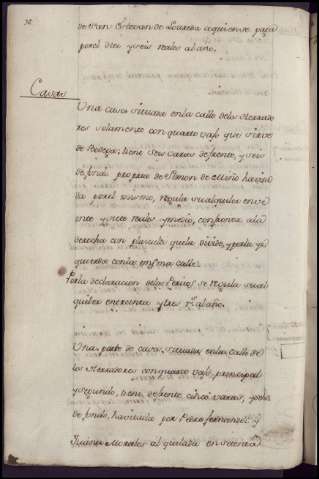 de Dn. Estevan de Loureira a quien se paga
por el diez y seis reales al año.
Casas
Una casa situada en la calle de los Herrado
res solamente con quarto vajo que sirve
de Bodega, tiene seis varas de frente, y seis
de fondo propia de Simon de
da por el mismo, regula su alquiler en ve
inte y siete reales y medio, confronta a la
derecha con plazuela que la divide, y por la yz
quierda con la misma calle.
Por la declaracion de los Peritos se regula su al
quiler en treinta y tres rs. al año.
Una parte de casa, situada en la calle de
los Herradores con quarto vajo, principal
y segundo, tiene de frente cinco varas, y
de fondo, havitada por Pedro Fernandez y
Juana Morales al quitada en setenta